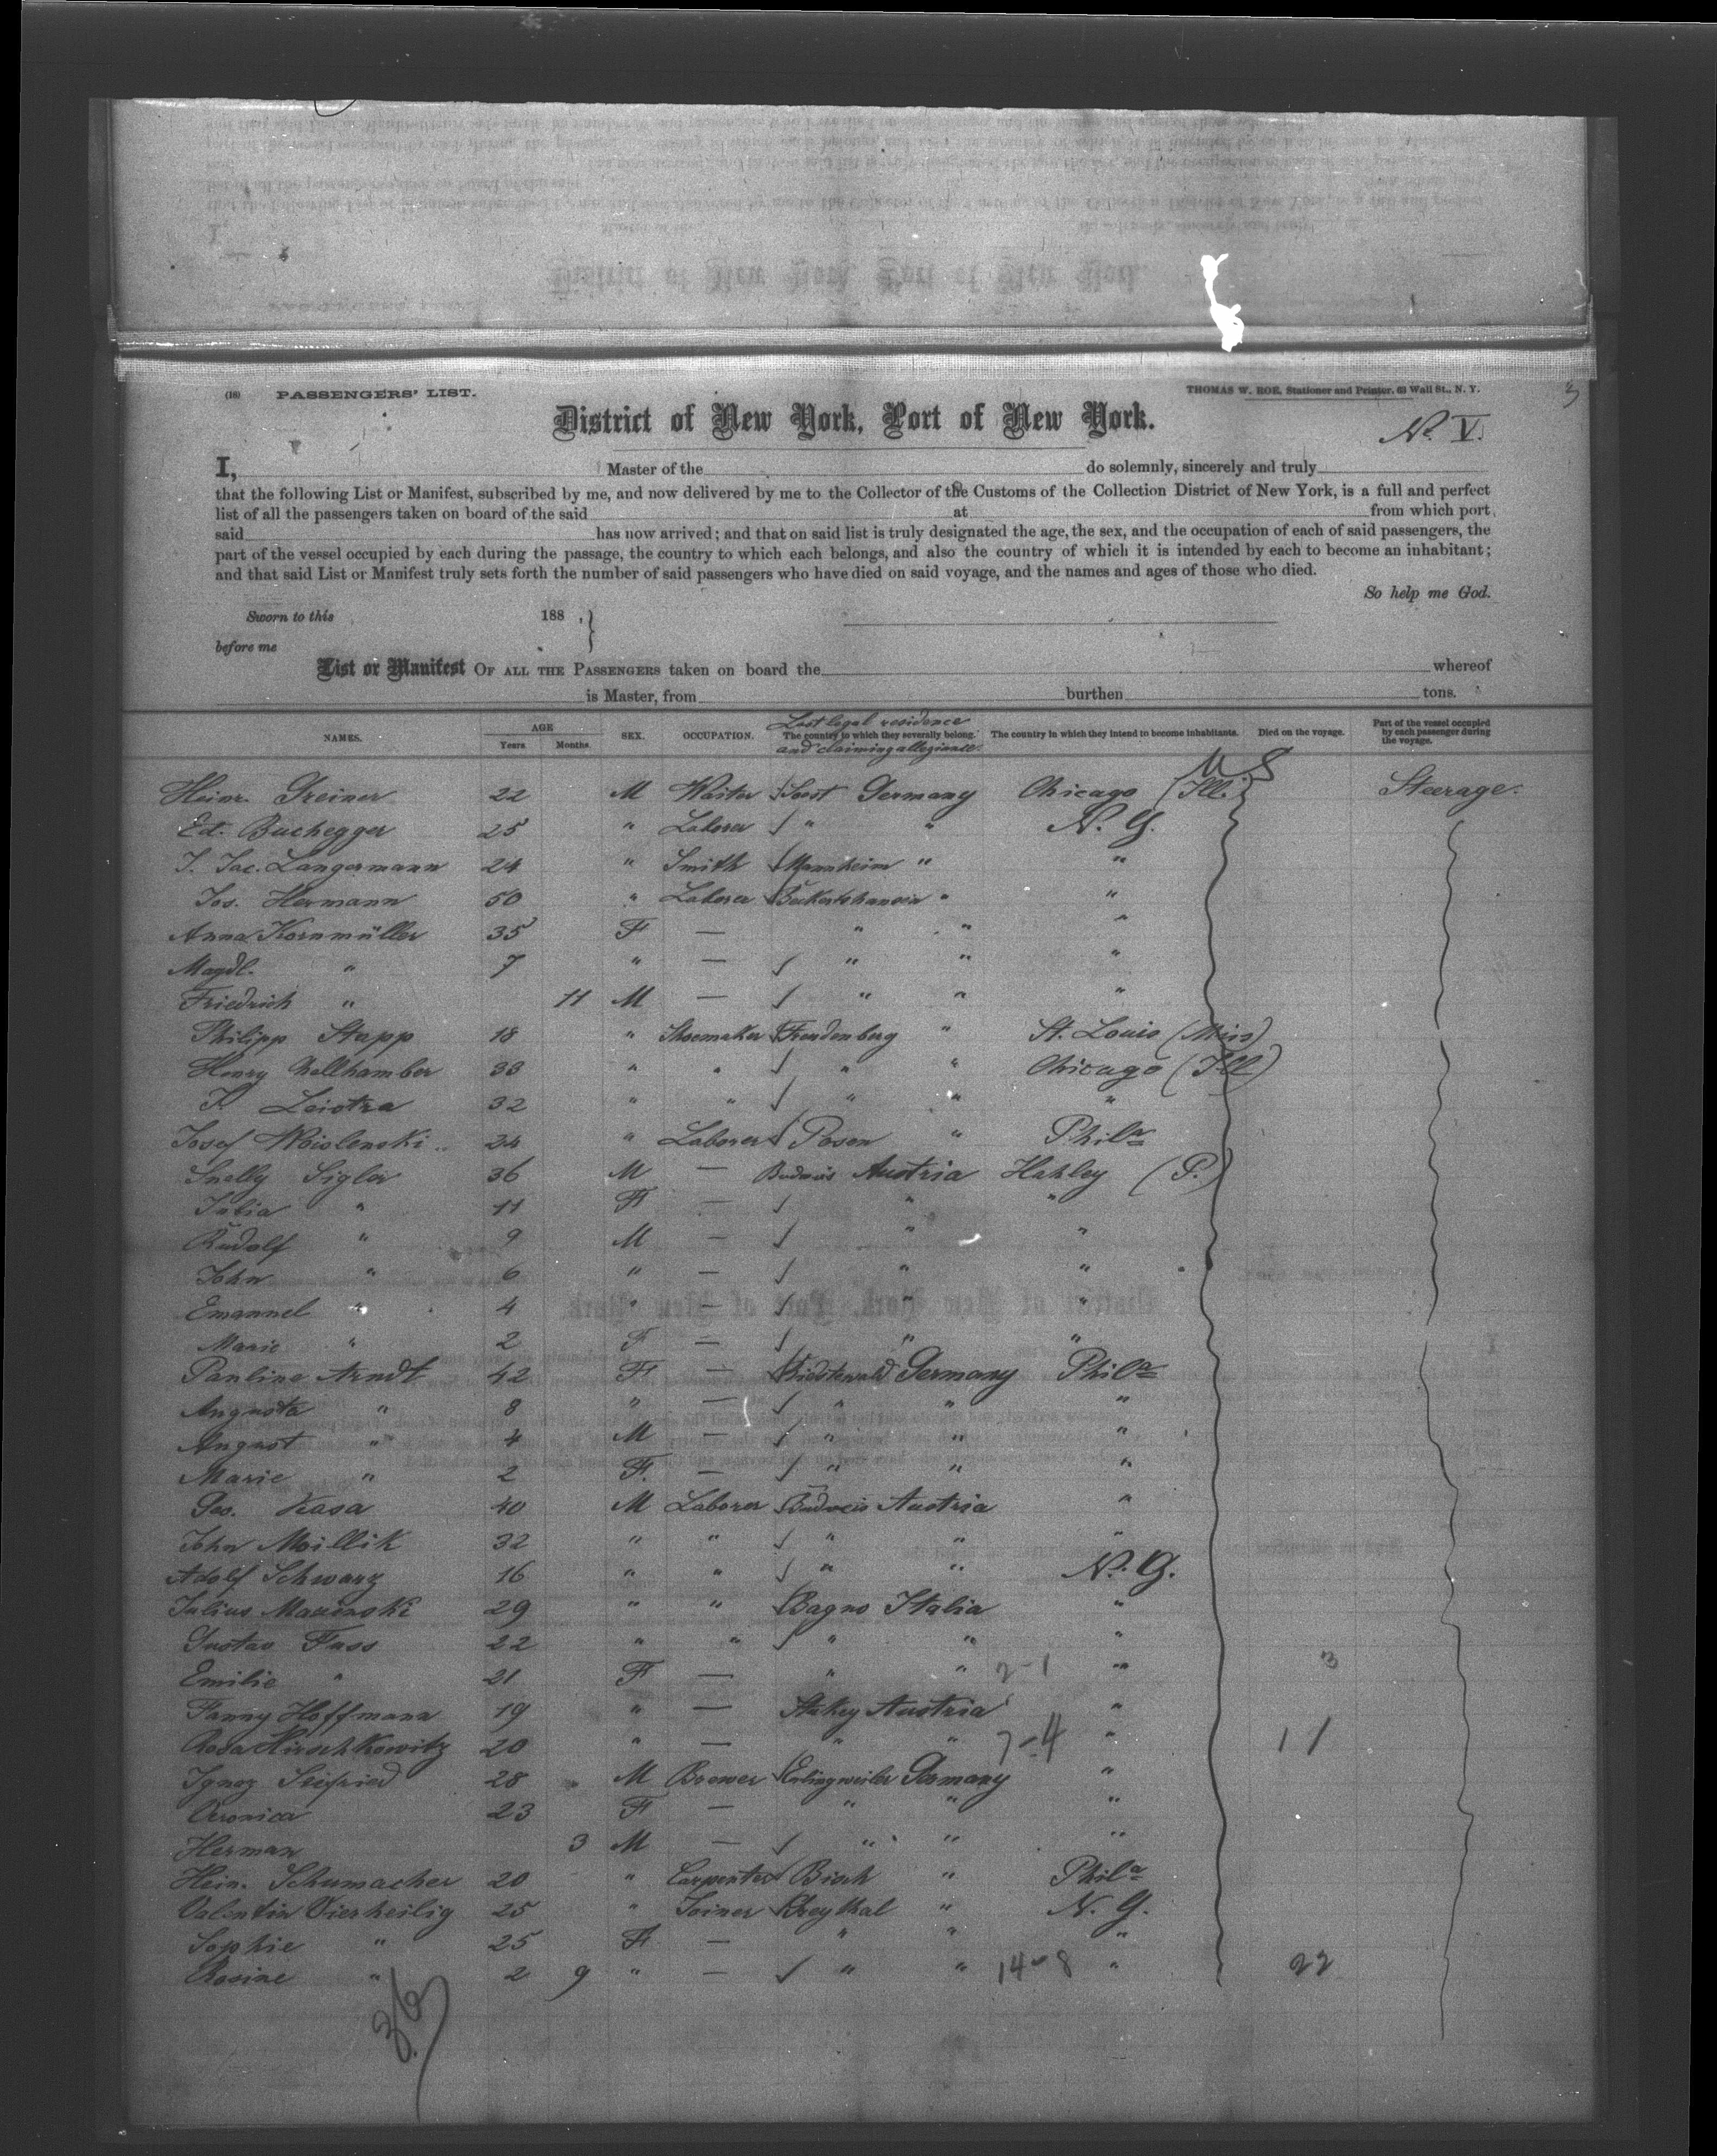 (18) PASSENGERS' LIST.
THOMAS W. ROE, Stationer and Printer, 63 Wall St., N. Y.
3
District of New York, Port of New York.
No. V.
I, Master of the do solemnly, sincerely and truly
that the following List or Manifest, subscribed by me, and now delivered by me to the Collector of the Customs of the Collection District of New York, is a full and perfect
list of all the passengers taken on board of the said at from which port
said has now arrived; and that on said list is truly designated the age, the sex, and the occupation of each of said passengers, the
part of the vessel occupied by each during the passage, the country to which each belongs, and also the country of which it is intended by each to become an inhabitant;
and that said List or Manifest truly sets forth the number of said passengers who have died on said voyage, and the names and ages of those who died.
So help me God.
Sworn to this 188 ,
before me
List or Manifest OF ALL THE PASSENGERS taken on board the whereof
is Master, from burthen tons.
NAMES. AGE Years Months SEX. OCCUPATION. Last legal residence The country to which they severally belong. and claiming allegiance The country in which they intend to become inhabitants. Died on the voyage. Part of the vessel occupied by each passenger during the voyage.
U S
Heinr. Greiner 22 M Waiter Soest Germany Chicago (Ill.) Steerage.
Ed. Buchegger 25 " Laborer " " N. Y.
J. Jac. Langermann 24 " Smith Mannheim " "
Jos. Hermann 50 " Laborer " "
Anna Kornmüller 35 F — " " "
Magdl. " 7 " — " " "
Friedrich " 11 M — " " "
Philipp Stapp 18 " Shoemaker Freudenberg " St. Louis (Miss)
Henry 33 " " " " Chicago (Ill)
J. Leistra 32 " " " " "
Josef Woislenski 24 " Laborer Posen " Phila
Snelly Sigler 36 M — Budweis Austria Hahley (P.)
Julia " 11 F — " "
Rudolf " 9 M — " "
John " 6 " — " "
Emanuel " 4 " — " "
Marie " 2 F — " "
Pauline Arndt 42 F — Germany Phila
Augusta " 8 " — " " "
August " 4 M — " " "
Marie " 2 F. — " " "
Geo. Kasa 40 M Laborer Budweis Austria "
John Moillik 32 " " " " "
Adolf Schwarz 16 " " " " N. Y.
Julius 29 " " Bagno Italia "
Gustav Fuss 22 " " " " "
Emilie " 21 F — " " 2-1 " 3
Fanny Hoffmann 19 " — Austria "
Rosa Hirschkowitz 20 " — " " 7-4 " 11
Ignaz Seifried 28 M Brewer Erlingweiler Germany "
Veronica 23 F — " " "
Herman 3 M — " " "
Hein. Schumacher 20 " Carpenter Bisch " Phila
Valentin Vierheilig 25 " Joiner " N. Y.
Sophie " 25 F — " " "
Rosine " 2 9 " — " " 14-8 " 22
36